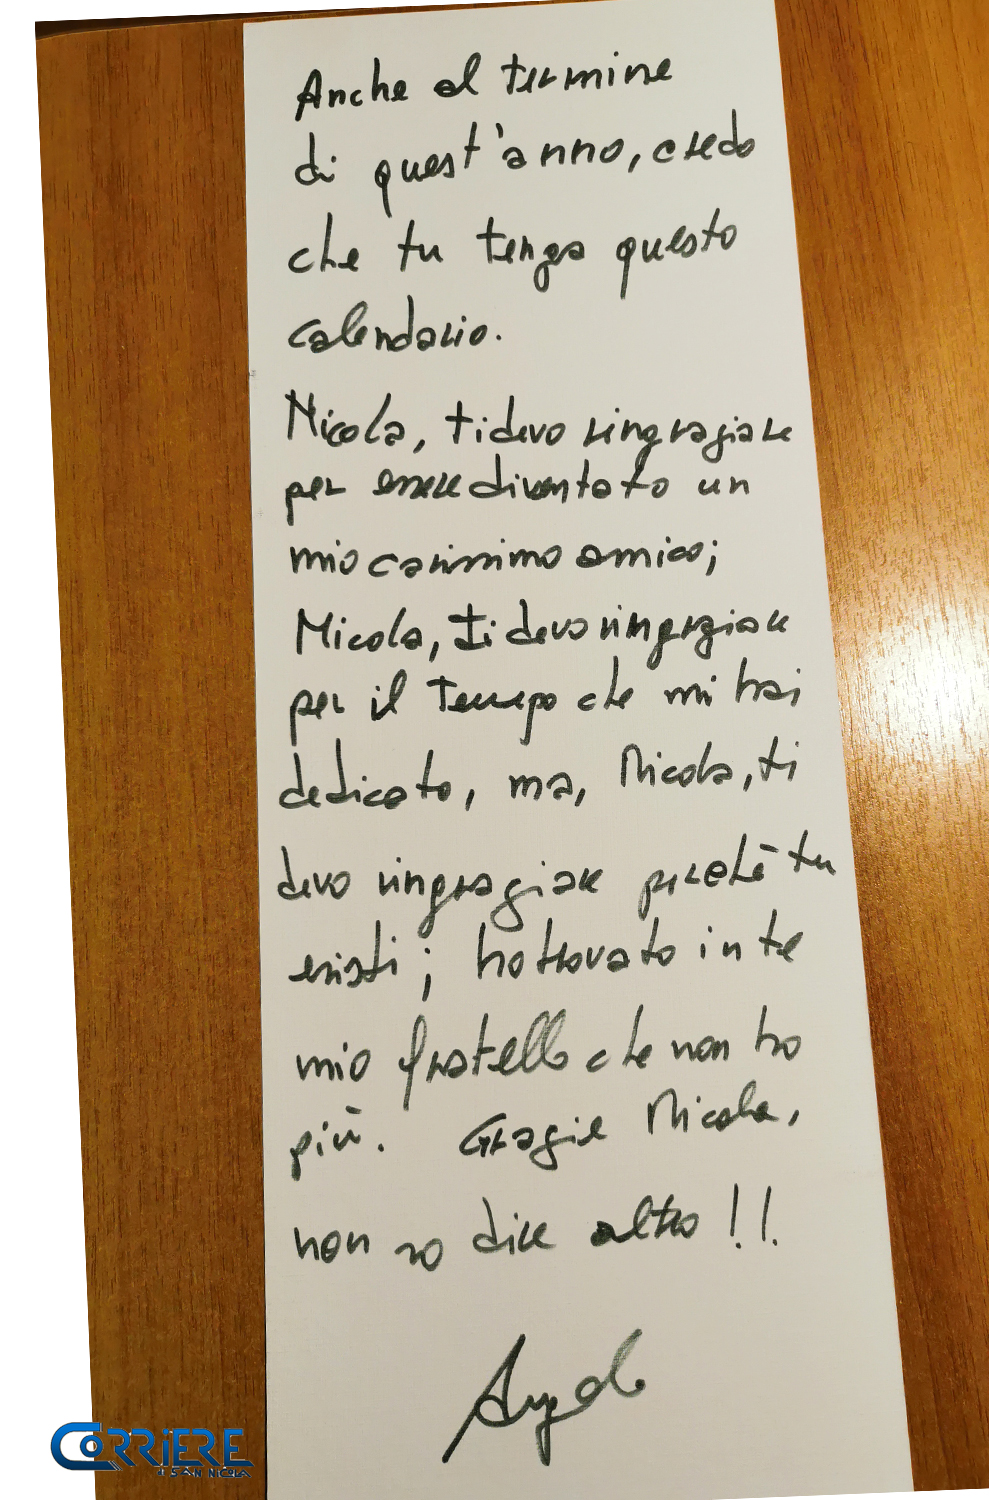 Anche al termine
di quest'anno, credo
che tu tenga questo
calendario.
Nicola, ti devo ringraziare
per essere diventato un
mio carissimo amico;
Nicola, ti devo ringraziare
per il tempo che mi hai
dedicato, ma, Nicola, ti
devo ringraziare perché tu
esisti; ho trovato in te
mio fratello che non ho
più. Grazie Nicola,
non so dire altro!!
CORRIERE
di SAN NICOLA